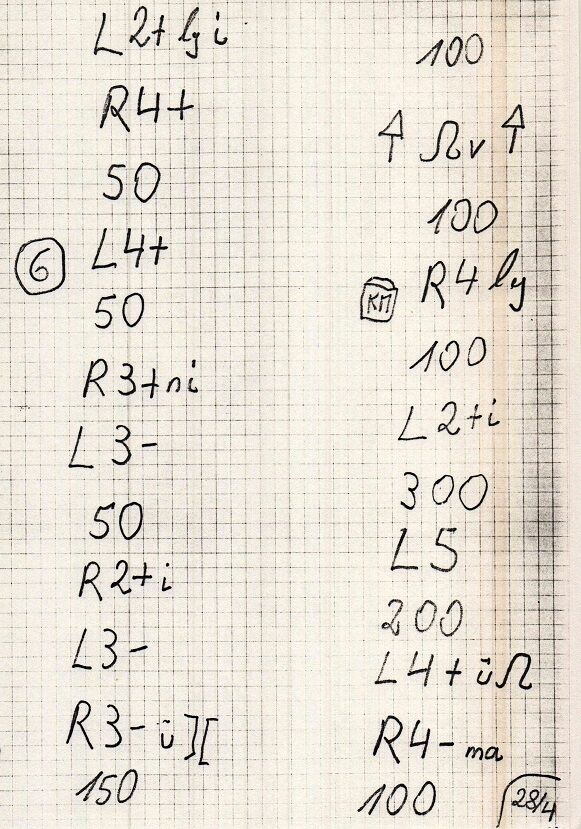 L2+ ly i
R4+
50
6 L4+
50
R3+ni
L3-
50
R2+i
L3-
R3- ü][
150
100
↑ Ω v ↑
100
КП R4 ly
100
L2+i
300
L5
200
L4+ üΩ
R4- ma
100
28/4